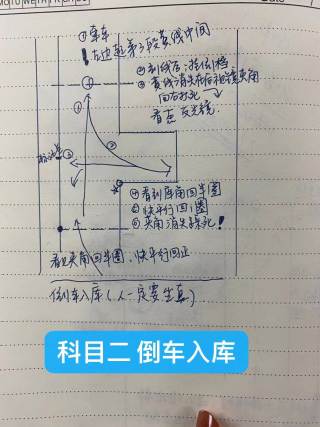 Date
①牵车
！左边起第3段黄线中间
②到线后：挂倒档
③黄线消失在后视镜夹角
向右打死
看左反光镜
①
②
③
④看到库角回半圈
⑤快平行回1圈
⑥夹角消失
看夹角回半圈、快平行回正
倒车入库（人一定要坐直）
科目二 倒车入库